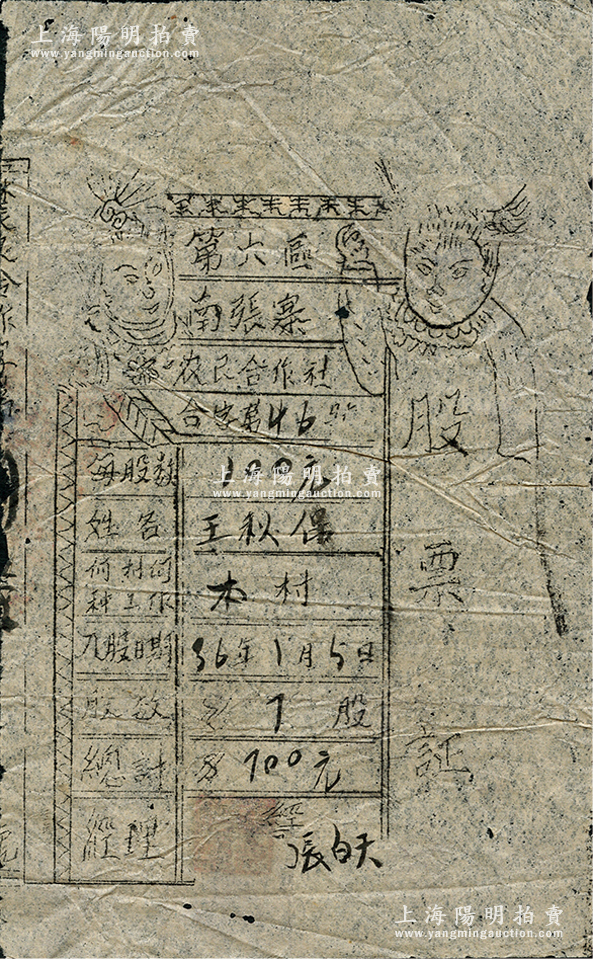 上海陽明拍賣
www.yangmingauction.com
第六區
南張寨
农民合作社
合字第46号
每股数 100元
上海陽明拍賣
www.yangmingauction.com
姓名 王秋保
何村何种工作 本村
入股日期 36年1月5日
股数 1股
總計 100元
經理 張白天
股票証
上海陽明拍賣
www.yangmingauction.com